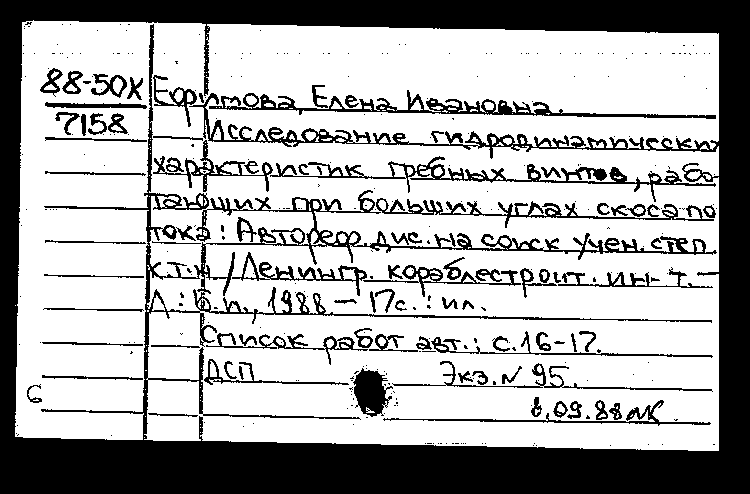 88-50К Ефримова, Елена Ивановна.
7158 Исследование гидродинамических
характеристик гребных винтов, рабо-
тающих при больших углах скоса по
тока: Автореф. дис. на соиск. учен. степ.
к.т.н. /Ленингр. кораблестроит. ин-т. –
Л.: Б.и., 1988 – 17с.: ил.
Список работ авт.: с.16-17.
ДСП Экз. N 95.
6 .09.88